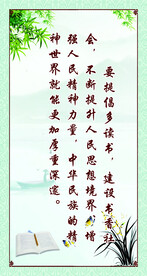 要提倡多读书，建设书香社
会，不断提升人民思想境界、增
强人民精神力量，中华民族的精
神世界就能更加厚重深邃。